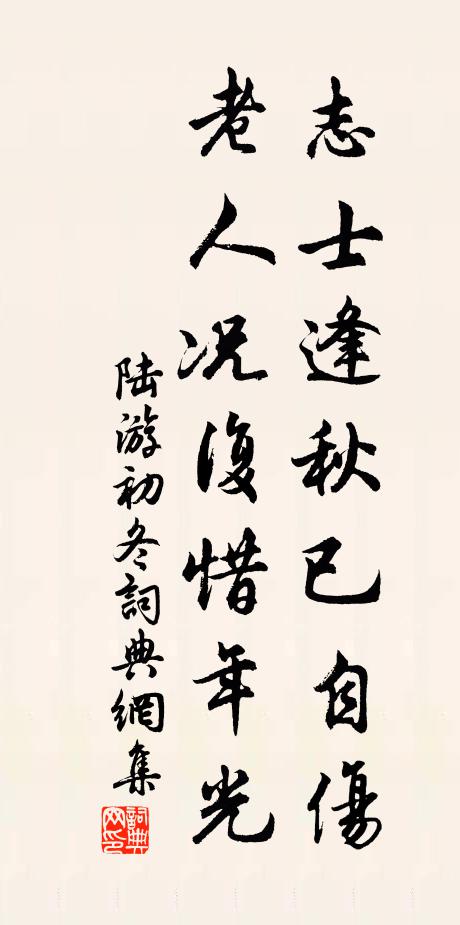 志士逢秋已自傷
老人况復惜年光
陆游初冬詞典網集
詞典
网印